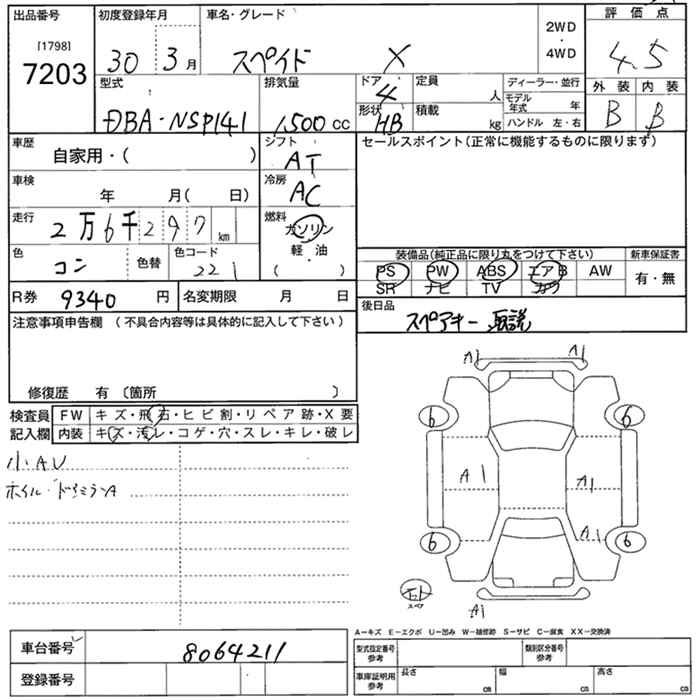 出品番号 初度登録年月 車名・グレード 2WD 評価点
[1798] ・
7203 30 3月 スペイド X 4WD 4.5
型式 排気量 ドア 4 定員 人 ディーラー・並行 外装 内装
モデル年式 年
DBA-NSP141 1,500cc 形状 HB 積載 kg ハンドル 左・右 B B
車歴 自家用・( ) シフト AT セールスポイント(正常に機能するものに限ります)
車検 年 月( 日) 冷房 AC
走行 2万6千297km 燃料 ガソリン
軽・油
色 コン 色替 色コード 221 ( ) 装備品(純正品に限り丸をつけて下さい) 新車保証書
PS PW ABS エアB AW 有・無
SR ナビ TV カワ
R券 9340円 名変期限 月 日 後日品
スペアキー 取説
注意事項申告欄 (不具合内容等は具体的に記入して下さい)
修復歴 有〔箇所 〕
検査員 FW キズ・飛石・ヒビ割・リペア跡・X要
記入欄 内装 キズ・汚レ・コゲ・穴・スレ・キレ・破レ
小AU
ホイル・ドアミラーA
A1 A1
6 6
A1 A1
A1
6 6
スペア
A1
A-キズ E-エクボ U-凹み W-補修跡 S-サビ C-腐食 XX-交換済
車台番号 8064211 型式指定番号 参考 類別区分番号 参考
登録番号 車庫証明用 参考 長さ cm 幅 cm 高さ cm